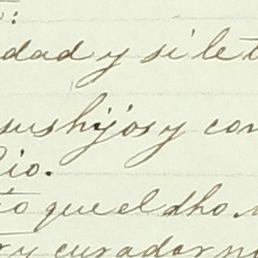 dad y si le t
sus hijos y con
cio.
to que el dho.
r y curador no